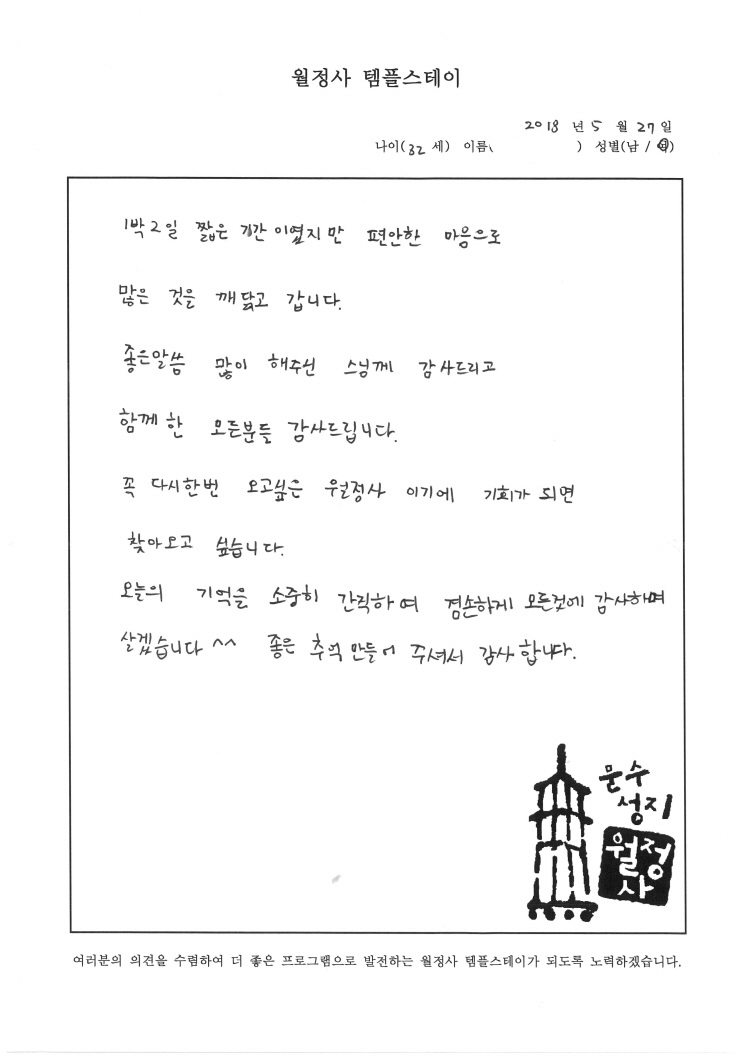 월정사 템플스테이
2018 년 5 월 27 일
나이(32 세) 이름( ) 성별(남 / 여)
1박 2일 짧은 기간 이였지만 편안한 마음으로
많은 것을 깨닳고 갑니다.
좋은말씀 많이 해주신 스님께 감사드리고
함께 한 모든분들 감사드립니다.
꼭 다시한번 오고싶은 월정사 이기에 기회가 되면
찾아오고 싶습니다.
오늘의 기억을 소중히 간직하여 겸손하게 모든것에 감사하며
살겠습니다 ^^ 좋은 추억 만들어 주셔서 감사합니다.
문수
성지
월정
사
여러분의 의견을 수렴하여 더 좋은 프로그램으로 발전하는 월정사 템플스테이가 되도록 노력하겠습니다.